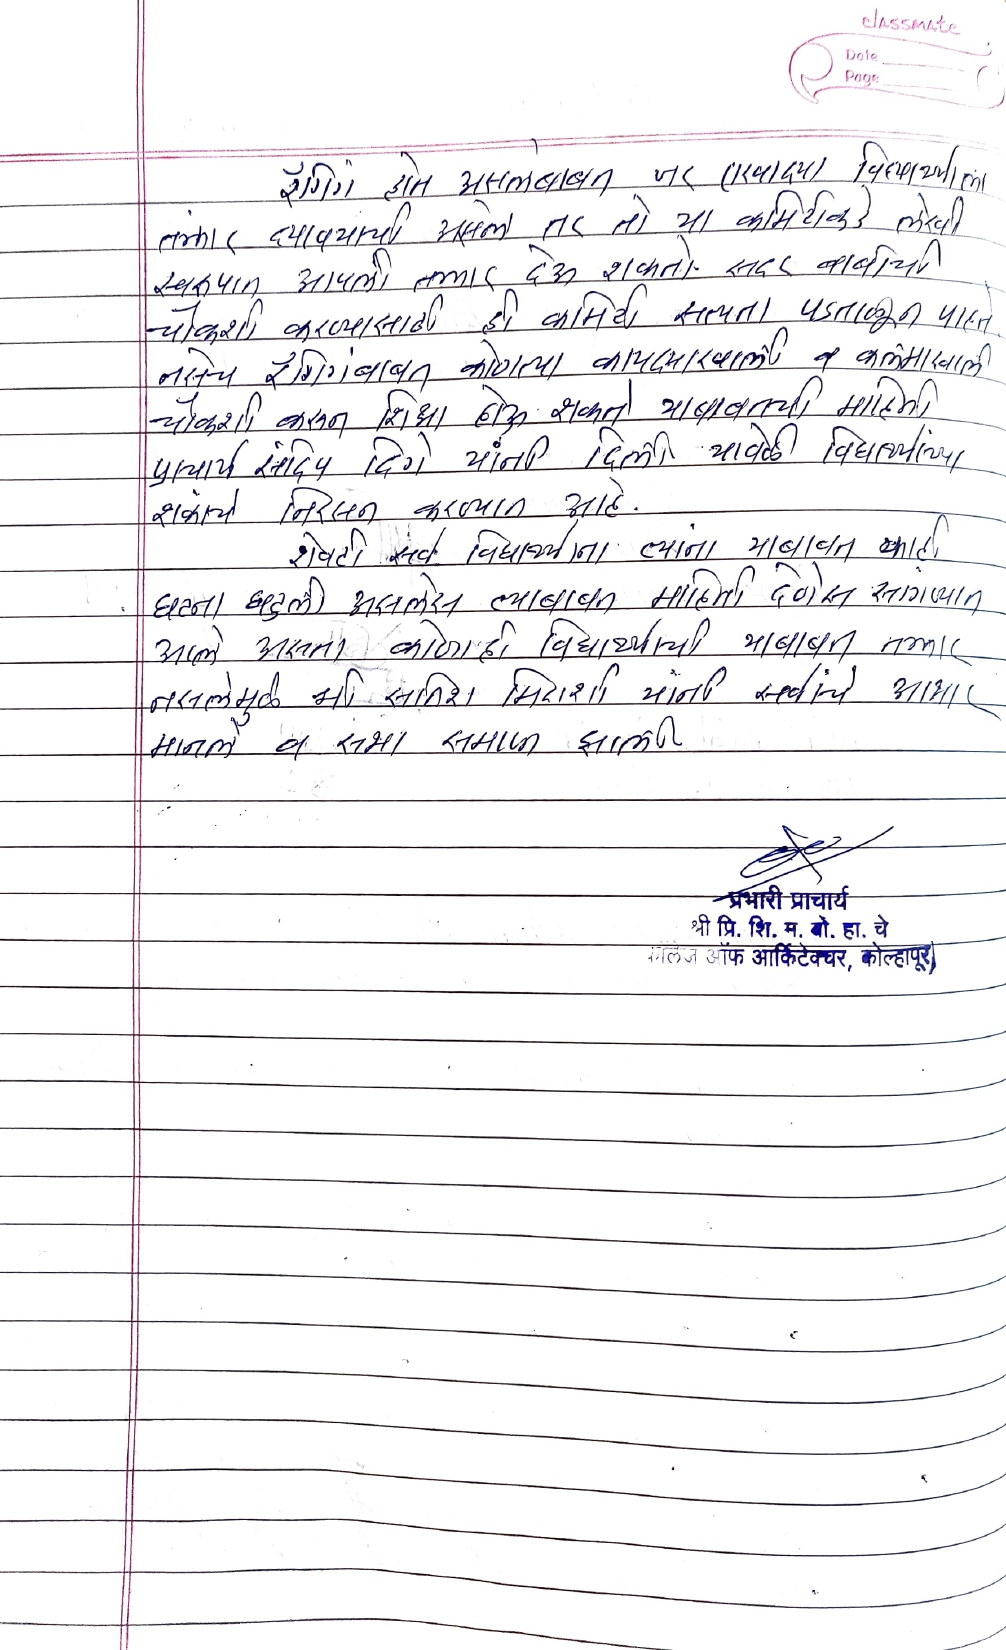 classmate
Date
Page
रॅगिंग होत असलेबाबत जर एखाद्या विद्यार्थ्याला
तक्रार द्यावयाची असेल तर तो या कमिटीकडे लेखी
स्वरुपात आपली तक्रार देऊ शकतो. सदर बाबींची
चौकशी करण्यासाठी ही कमिटी सत्यता पडताळून पाहते
तसेच रॅगिंगबाबत कोणत्या कायद्याखाली व कलमाखाली
चौकशी करून शिक्षा होऊ शकते याबाबतची माहिती
प्राचार्य संदिप दिगे यांनी दिली यावेळी विद्यार्थ्यांच्या
शंकांचे निरसन करण्यात आहे.
शेवटी सर्व विद्यार्थ्यांना त्यांना याबाबत काही
घटना घडली असलेस त्याबाबत माहिती देणेस सांगण्यात
आले असता कोणाही विद्यार्थ्याची याबाबत तक्रार
नसलेमुळे श्री सतिश मिराशी यांनी सर्वांचे आभार
मानले व सभा समाप्त झाली
प्रभारी प्राचार्य
श्री प्रि. शि. म. बो. हा. चे
कॉलेज ऑफ आर्किटेक्चर, कोल्हापूर